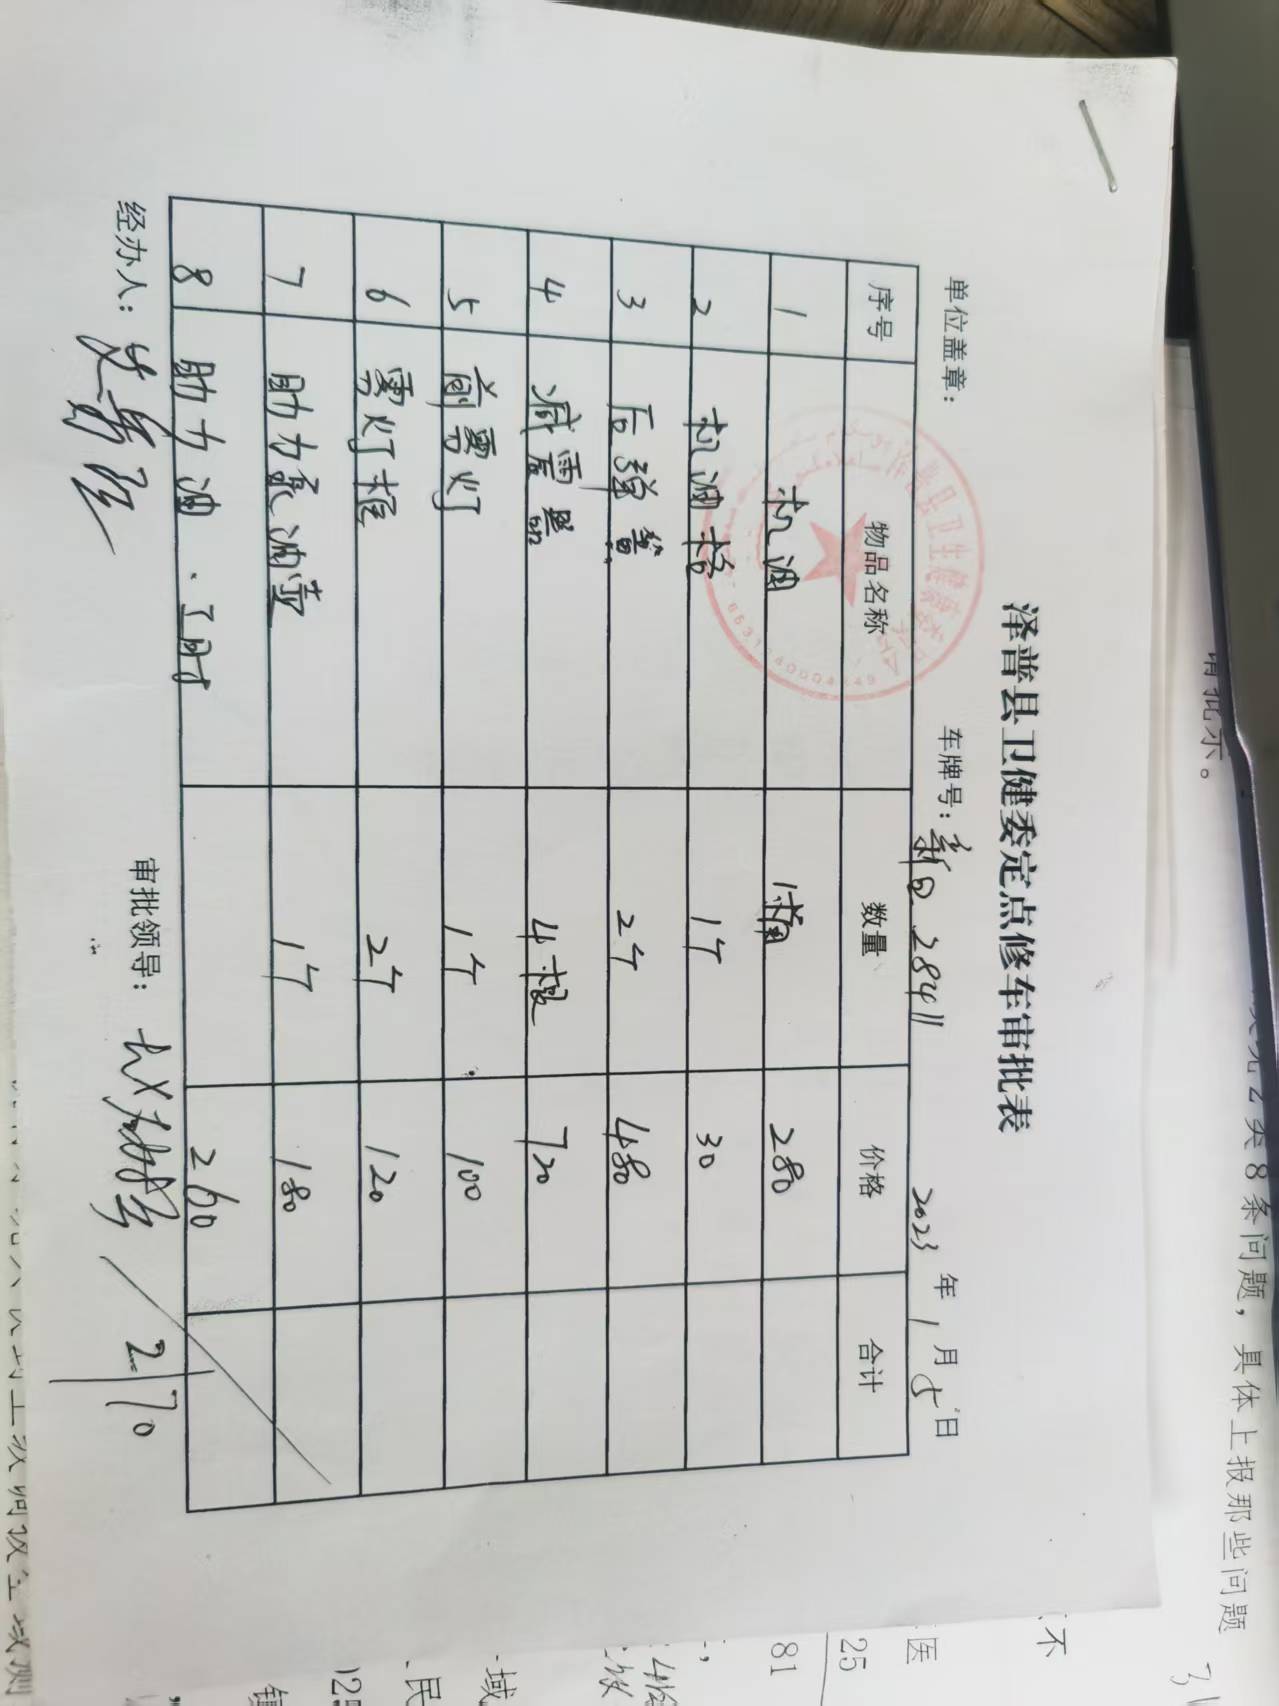 泽普县卫健委定点修车审批表
单位盖章： 车牌号：新Q 28411 2023 年 1 月 5 日
序号 物品名称 数量 价格 合计
1 机油 1桶 280
2 机油格 1个 30
3 后弹簧 2个 480
4 减震器 4根 720
5 前雾灯 1个 100
6 雾灯框 2个 120
7 助力泵油壶 1个 180
8 助力油．工时 260
经办人： 审批领导： 2170
请批示。
2类8条问题，具体上报那些问题
不
医
25
81
域
民